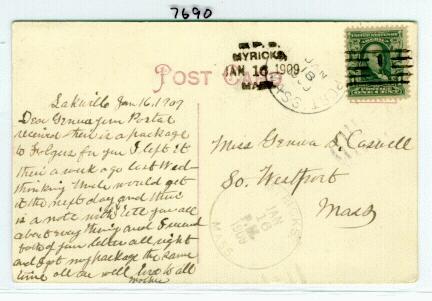 7690
R.P.O.
MYRICKS,
JAN 16 1909
MASS.
POST CARD
JAN
18
Lakville Jan 16, 1909
Dear Genna your Postal
received there is a package
to for you I left it
there a week ago last Wed-
thinking would get
it the next day and there
is a note with it tell you all
about every thing and I received
both of your letters all right
and got my package the same
time all are well love to all
mother
Miss Genna L. Caswell
So. Westport
Mass
MYRICKS
JAN
16
1909
MASS.